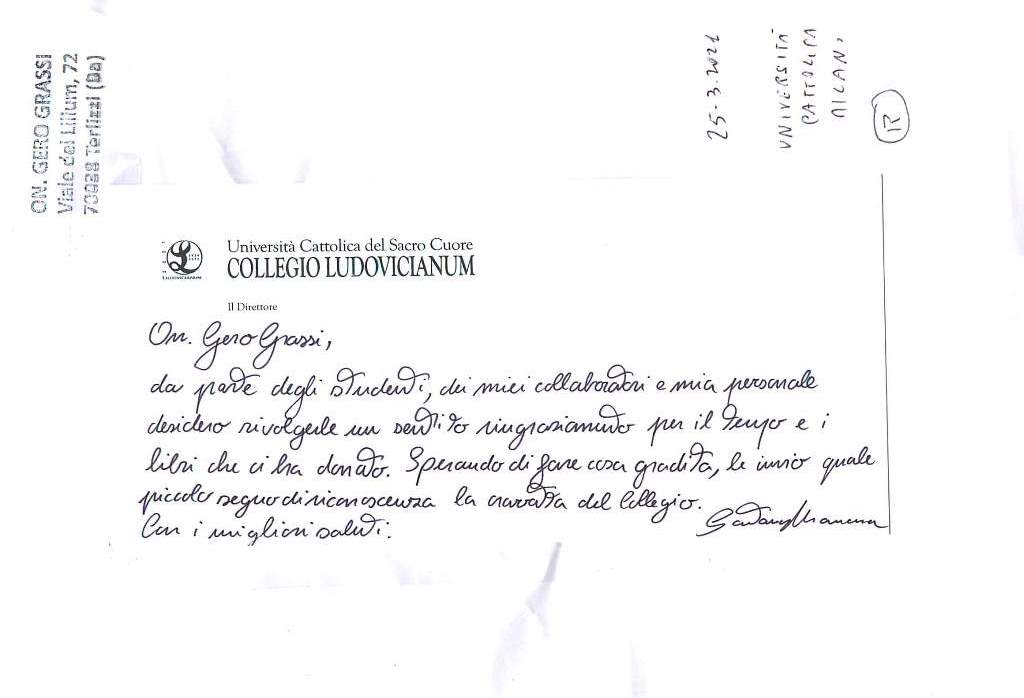 ON. GERO GRASSI
Viale dei Lilium, 72
70038 Terlizzi (Ba)
25-3-2021
UNIVERSITÀ
CATTOLICA
MILANO
Università Cattolica del Sacro Cuore
COLLEGIO LUDOVICIANUM
LUDOVICIANUM
Il Direttore
On. Gero Grassi,
da parte degli studenti, dei miei collaboratori e mia personale
desidero rivolgerle un sentito ringraziamento per il tempo e i
libri che ci ha donato. Sperando di fare cosa gradita, le invio quale
piccolo segno di riconoscenza la cravatta del Collegio.
Con i migliori saluti.